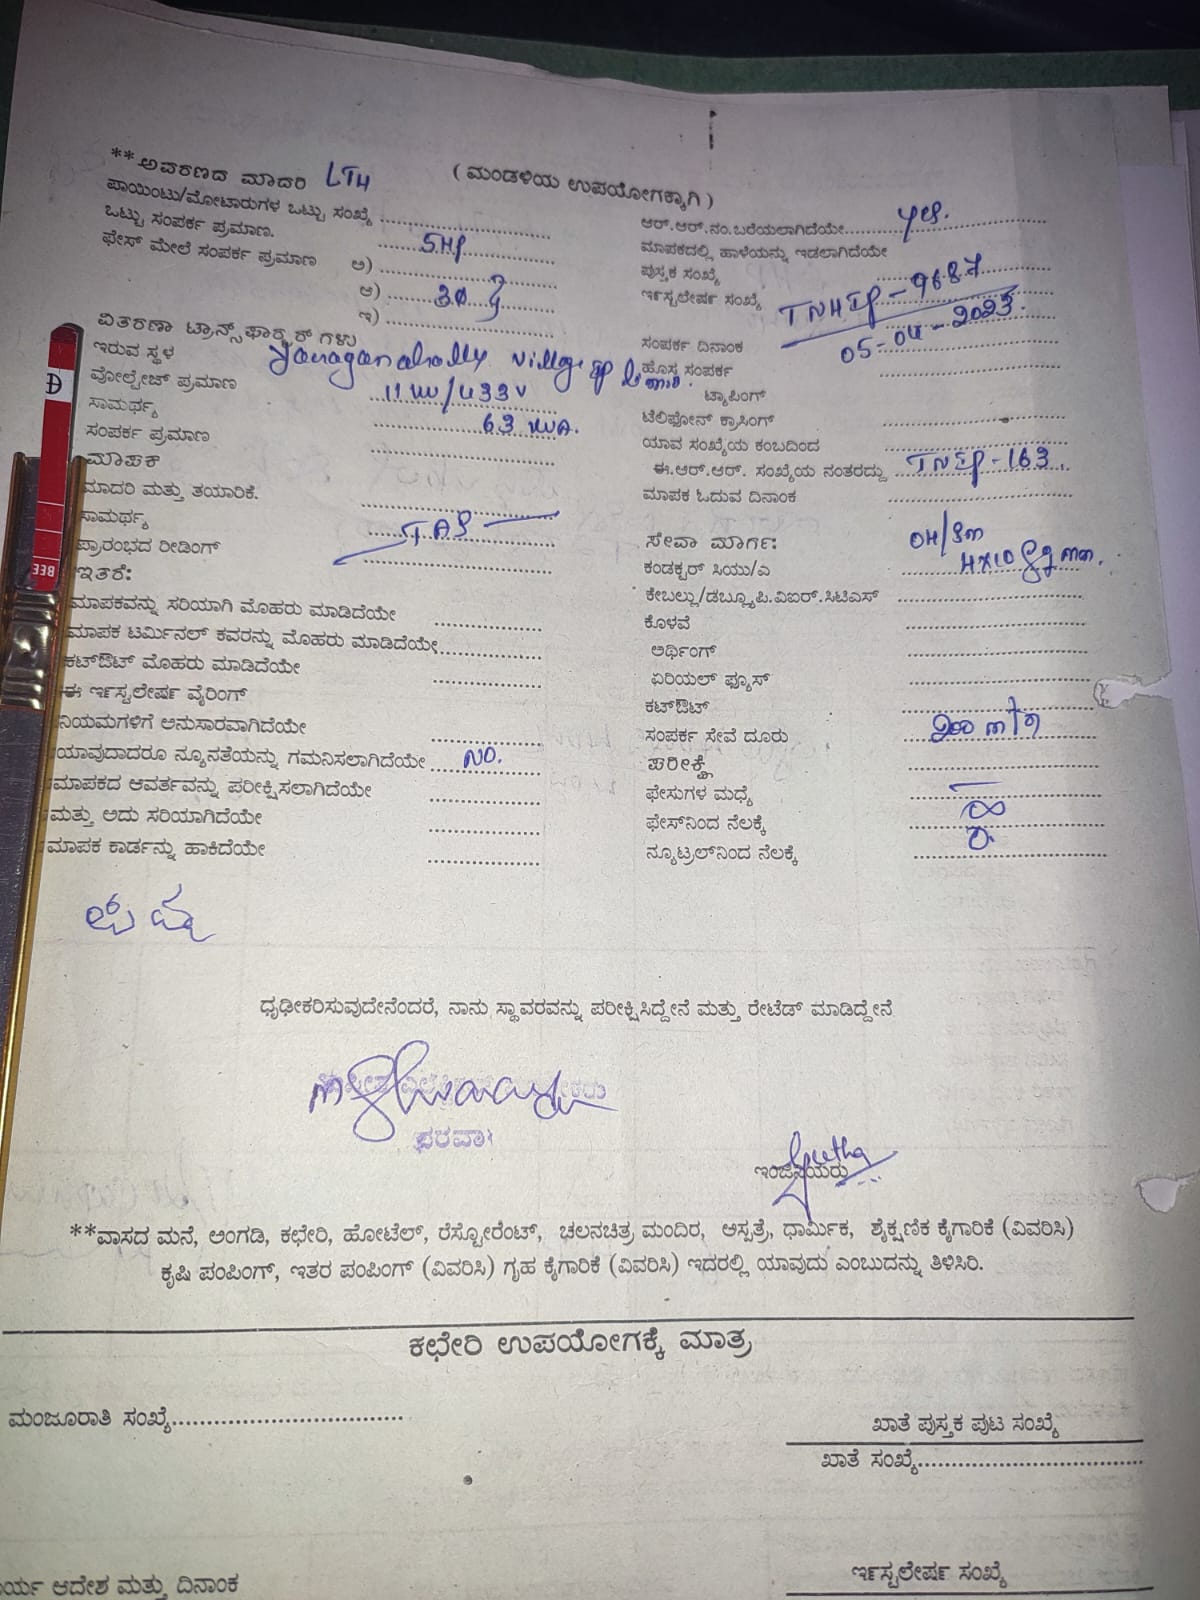 **ಅವರಣದ ಮಾದರಿ LT4
( ಮಂಡಳಿಯ ಉಪಯೋಗಕ್ಕಾಗಿ )
ಪಾಯಿಂಟು/ಮೋಟಾರುಗಳ ಒಟ್ಟು ಸಂಖ್ಯೆ
ಒಟ್ಟು ಸಂಪರ್ಕ ಪ್ರಮಾಣ. 5HP
ಫೇಸ್ ಮೇಲೆ ಸಂಪರ್ಕ ಪ್ರಮಾಣ ಅ)
ಆ) 30
ಇ)
ವಿತರಣಾ ಟ್ರಾನ್ಸ್‌ಫಾರ್ಮರ್ ಗಳು
ಇರುವ ಸ್ಥಳ village
ವೋಲ್ಟೇಜ್ ಪ್ರಮಾಣ 11 KV/433V
ಸಾಮರ್ಥ್ಯ 63 KVA.
ಸಂಪರ್ಕ ಪ್ರಮಾಣ
ಮಾಪಕ
ಮಾದರಿ ಮತ್ತು ತಯಾರಿಕೆ.
ಸಾಮರ್ಥ್ಯ
ಪ್ರಾರಂಭದ ರೀಡಿಂಗ್
ಇತರೆ:
ಮಾಪಕವನ್ನು ಸರಿಯಾಗಿ ಮೊಹರು ಮಾಡಿದೆಯೇ
ಮಾಪಕ ಟರ್ಮಿನಲ್ ಕವರನ್ನು ಮೊಹರು ಮಾಡಿದೆಯೇ
ಕಟ್‌ಔಟ್ ಮೊಹರು ಮಾಡಿದೆಯೇ
ಈ ಇನ್ಸ್ಟಲೇಷನ್ ವೈರಿಂಗ್
ನಿಯಮಗಳಿಗೆ ಅನುಸಾರವಾಗಿದೆಯೇ
ಯಾವುದಾದರೂ ನ್ಯೂನತೆಯನ್ನು ಗಮನಿಸಲಾಗಿದೆಯೇ NO.
ಮಾಪಕದ ಆವರ್ತವನ್ನು ಪರೀಕ್ಷಿಸಲಾಗಿದೆಯೇ
ಮತ್ತು ಅದು ಸರಿಯಾಗಿದೆಯೇ
ಮಾಪಕ ಕಾರ್ಡನ್ನು ಹಾಕಿದೆಯೇ
ಆರ್.ಆರ್.ನಂ.ಬರೆಯಲಾಗಿದೆಯೇ yes.
ಮಾಪಕದಲ್ಲಿ ಹಾಳೆಯನ್ನು ಇಡಲಾಗಿದೆಯೇ
ಪುಸ್ತಕ ಸಂಖ್ಯೆ
ಇನ್ಸ್ಟಲೇಷನ್ ಸಂಖ್ಯೆ TNHIP-9687
ಸಂಪರ್ಕ ದಿನಾಂಕ 05-04-2023.
ಹೊಸ ಸಂಪರ್ಕ
ಟ್ಯಾಪಿಂಗ್
ಟೆಲಿಫೋನ್ ಕ್ರಾಸಿಂಗ್
ಯಾವ ಸಂಖ್ಯೆಯ ಕಂಬದಿಂದ
ಈ.ಆರ್.ಆರ್. ಸಂಖ್ಯೆಯ ನಂತರದ್ದು TNIP-163.
ಮಾಪಕ ಓದುವ ದಿನಾಂಕ
ಸೇವಾ ಮಾರ್ಗ:
ಕಂಡಕ್ಟರ್ ಸಿಯು/ಎ
ಕೇಬಲ್ಲು/ಡಬ್ಲ್ಯೂಪಿ.ವಿಐಆರ್.ಸಿಟಿಎಸ್
ಕೊಳವೆ
ಅರ್ಥಿಂಗ್
ಏರಿಯಲ್ ಫ್ಯೂಸ್
ಕಟ್‌ಔಟ್
ಸಂಪರ್ಕ ಸೇವೆ ದೂರು
ಪರೀಕ್ಷೆ
ಫೇಸುಗಳ ಮಧ್ಯೆ
ಫೇಸ್‌ನಿಂದ ನೆಲಕ್ಕೆ ∞
ನ್ಯೂಟ್ರಲ್‌ನಿಂದ ನೆಲಕ್ಕೆ
ಧೃಢೀಕರಿಸುವುದೇನೆಂದರೆ, ನಾನು ಸ್ಥಾವರವನ್ನು ಪರೀಕ್ಷಿಸಿದ್ದೇನೆ ಮತ್ತು ರೇಟೆಡ್ ಮಾಡಿದ್ದೇನೆ
ಇಂಜಿನಿಯರು
**ವಾಸದ ಮನೆ, ಅಂಗಡಿ, ಕಛೇರಿ, ಹೋಟೆಲ್, ರೆಸ್ಟೋರೆಂಟ್, ಚಲನಚಿತ್ರ ಮಂದಿರ, ಆಸ್ಪತ್ರೆ, ಧಾರ್ಮಿಕ, ಶೈಕ್ಷಣಿಕ ಕೈಗಾರಿಕೆ (ವಿವರಿಸಿ)
ಕೃಷಿ ಪಂಪಿಂಗ್, ಇತರ ಪಂಪಿಂಗ್ (ವಿವರಿಸಿ) ಗೃಹ ಕೈಗಾರಿಕೆ (ವಿವರಿಸಿ) ಇದರಲ್ಲಿ ಯಾವುದು ಎಂಬುದನ್ನು ತಿಳಿಸಿರಿ.
ಕಛೇರಿ ಉಪಯೋಗಕ್ಕೆ ಮಾತ್ರ
ಮಂಜೂರಾತಿ ಸಂಖ್ಯೆ
ಖಾತೆ ಪುಸ್ತಕ ಪುಟ ಸಂಖ್ಯೆ
ಖಾತೆ ಸಂಖ್ಯೆ
ಆದೇಶ ಮತ್ತು ದಿನಾಂಕ
ಇನ್ಸ್ಟಲೇಷನ್ ಸಂಖ್ಯೆ